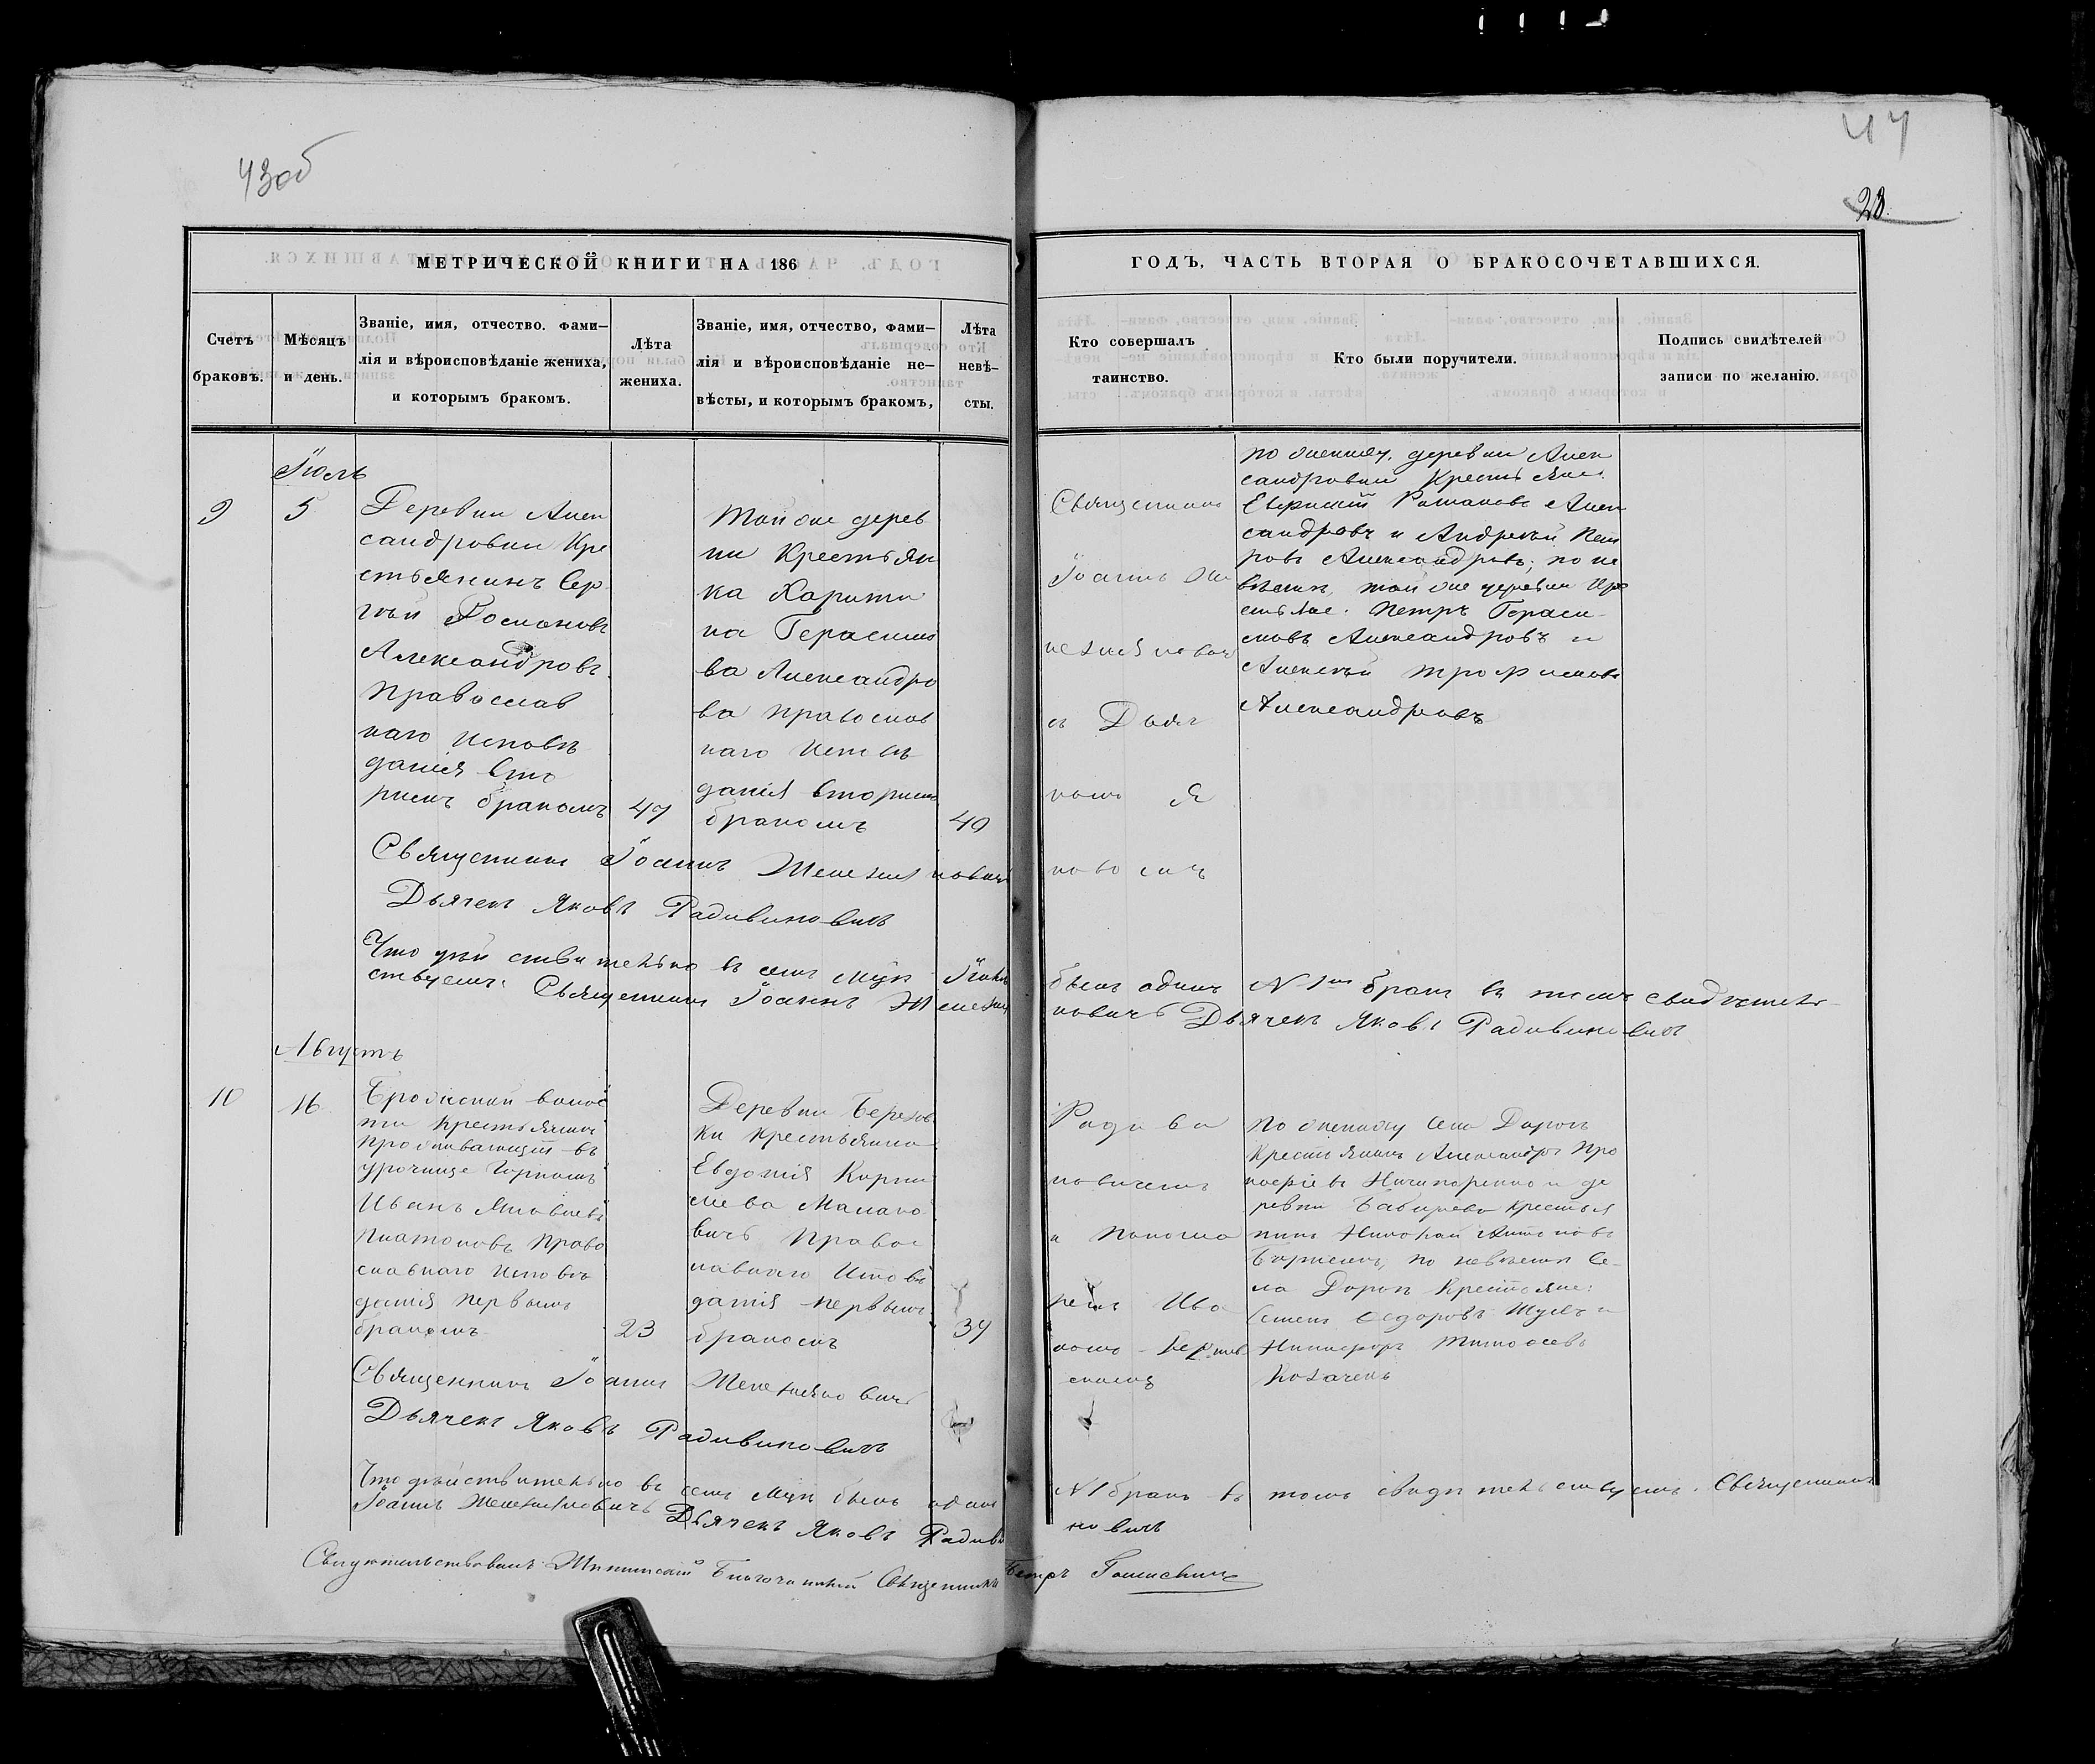 43об
44
28.
МЕТРИЧЕСКОЙ КНИГИ НА 186
ГОДЪ, ЧАСТЬ ВТОРАЯ О БРАКОСОЧЕТАВШИХСЯ.
Счетъ браковъ.
Мѣсяцъ и день.
Званіе, имя, отчество. фами-
лія и вѣроисповѣданіе жениха,
и которымъ бракомъ.
Лѣта
жениха.
Званіе, имя, отчество, фами-
лія и вѣроисповѣданіе не-
вѣсты, и которымъ бракомъ,
Лѣта
невѣ-
сты.
Кто совершалъ
таинство.
Кто были поручители.
Подпись свидѣтелей
записи по желанію.
Іюль
9
5
Деревни Алек
сандровки Кре
стьянинъ Сер
гѣй Романовъ
Александровъ
Православ
наго Исповѣ
данія вто
рымъ бракомъ
47
Той же дерев
ни Крестьян
ка Харити
на Герасимо
ва Александро
ва православ
наго Исповѣ
данія вторымъ
бракомъ
40
Священникъ
Іоаннъ Же
лезняковичъ
съ Дьяч
комъ Я
ковомъ
по жениху, деревни Алек
сандровки Крестьяне
Романовъ Алек
сандровъ и Андрей Пет
ровъ Александровъ; по не
вѣстѣ, той же деревни Кре
стьяне. Петръ Гераси
мовъ Александровъ и
Алексѣй Трофимовъ
Александровъ
Священникъ Іоаннъ Железняковичъ
Дьячекъ Яковъ Радивиновичъ
Что дѣйствительно въ семъ мцѣ Іюлѣ былъ одинъ № 1мъ бракъ въ томъ свидѣтель-
ствуемъ. Священникъ Іоаннъ Железняковичъ Дьячекъ Яковъ Радивиновичъ
Августъ
10
16
волос
ти Крестьянинъ
проживающій въ
урочище
Иванъ Яковлевъ
Платоновъ Право
славнаго Исповѣ
данія первымъ
бракомъ
23
Деревни Березов
ки крестьянка
Евдокія Кирил
лева
вичъ Правос
лавнаго Исповѣ
данія первымъ
бракомъ
34
Радиви
новичемъ
и Понома
ремъ Ива
номъ
По жениху Села Дорогъ
Крестьянинъ Александръ Про
кофіевъ Ничипоренко и де
ревни крестья
нинъ Николай Антоновъ
по невѣстѣ Се-
ла Дорогъ Крестьяне:
Ѳедоровъ и
Никифоръ Тимоѳеевъ
Козаченъ
Священникъ Іоаннъ Железняковичъ
Дьячекъ Яковъ Радивиновичъ
Что дѣйствительно въ семъ мцѣ былъ одинъ № 1 бракъ въ томъ свидѣтельствуемъ. Священникъ
Іоаннъ Железняковичъ Дьячекъ Яковъ Радиви
новичъ
Свидѣтельствовалъ Благочинный Священникъ Петръ